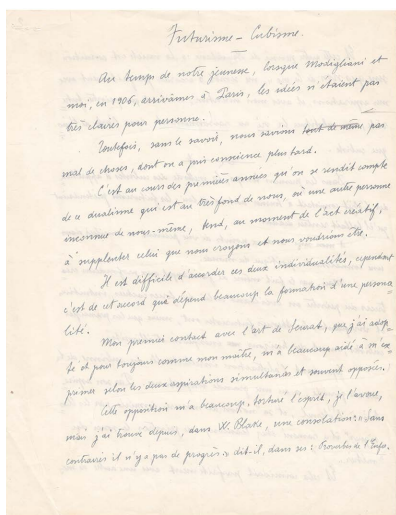 Futurisme – Cubisme.
Au temps de notre jeunesse, lorsque Modigliani et
moi, en 1906, arrivâmes à Paris, les idées n'étaient pas
très claires pour personne.
Toutefois, sans le savoir, nous savions tout de même pas
mal de choses, dont on a pris conscience plus tard.
C'est au cours des premières années qu'on se rendit compte
de ce dualisme qui est au très fond de nous, où une autre personne
inconnue de nous-même, tend, au moment de l'act créatif,
à supplenter celui que nous croyons et nous voudrions être.
Il est difficile d'accorder ces deux individualités, cependant
c'est de cet accord que dépend beaucoup la formation d'une persona-
lité.
Mon premier contact avec l'art de Seurat, que j'ai adop-
té et pour toujours comme mon maître, m'a beaucoup aidé à m'ex-
primer selon les deux aspirations simultanées et souvent opposées.
Cette opposition m'a beaucoup torturé l'esprit, je l'avoue,
mais j'ai trouvé depuis, dans W. Blake, une consolation: « Sans
contraires il n'y a pas de progrès » dit-il, dans ses: Proverbes de l'Enfer.